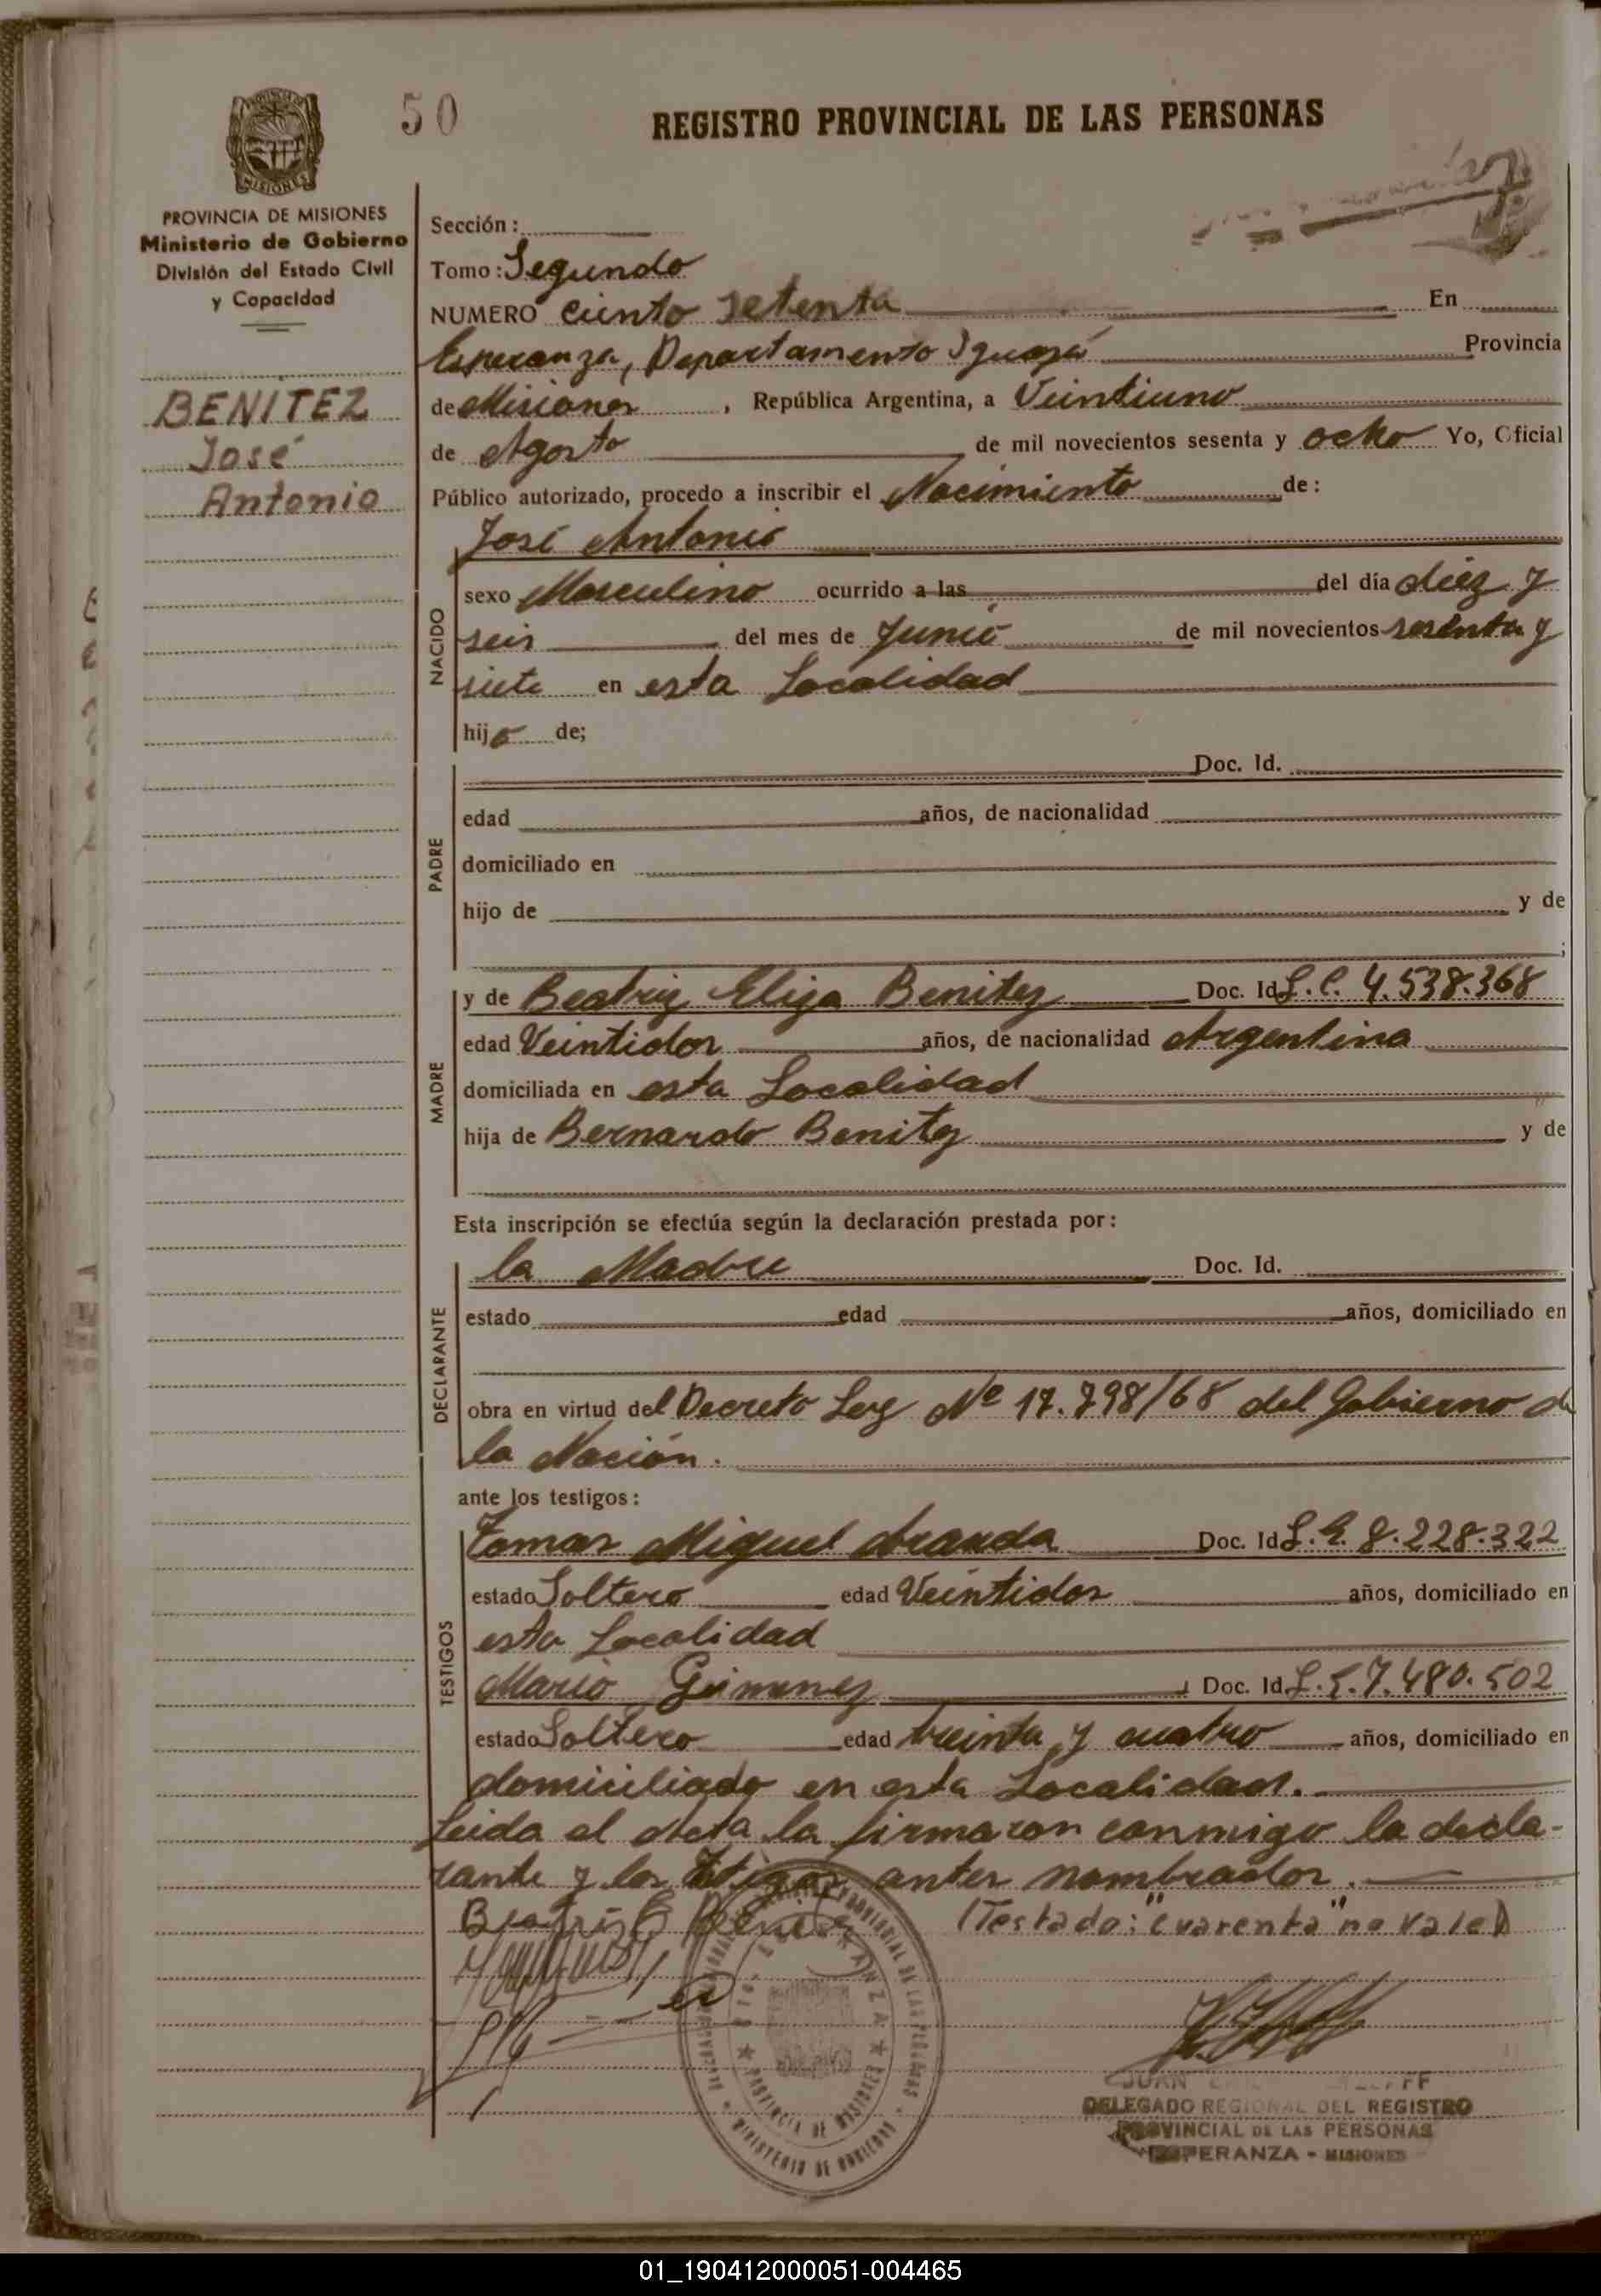 50
REGISTRO PROVINCIAL DE LAS PERSONAS
PROVINCIA DE MISIONES
Ministerio de Gobierno
División del Estado Civil
y Capacidad
BENÍTEZ
José
Antonio
Sección:
Tomo: Segundo
NUMERO ciento setenta En
Esperanza, Departamento Iguazú Provincia
de Misiones, República Argentina, a Veintiuno
de Agosto de mil novecientos sesenta y ocho Yo, Oficial
Público autorizado, procedo a inscribir el Nacimiento de:
José Antonio
NACIDO
sexo Masculino ocurrido a las del día diez y
seis del mes de Junio de mil novecientos sesenta y
siete en esta Localidad
hijo de;
PADRE
Doc. Id.
edad años, de nacionalidad
domiciliado en
hijo de y de
;
MADRE
y de Beatriz Eliza Benitez Doc. Id L.C. 4.538.368
edad Veintidos años, de nacionalidad Argentina
domiciliada en esta Localidad
hija de Bernardo Benitez y de
Esta inscripción se efectúa según la declaración prestada por:
DECLARANTE
la Madre Doc. Id.
estado edad años, domiciliado en
obra en virtud del Decreto Ley Nº 17.798/68 del Gobierno de
la Nación.
ante los testigos:
TESTIGOS
Tomas Miguel Aranda Doc. Id L.E. 8.228.322
estado Soltero edad Veintidos años, domiciliado en
esta Localidad
Mario Gimenez Doc. Id. L.E. 7.480.502
estado Soltero edad treinta y cuatro años, domiciliado en
domiciliado en esta Localidad.
Leida el Acta la firmaron conmigo la decla-
rante y los testigos antes nombrados.
Beatris E Benitez (Testado: "cuarenta" no vale)
PROVINCIA DE MISIONES
MINISTERIO DE GOBIERNO
JUAN
DELEGADO REGIONAL DEL REGISTRO
PROVINCIAL DE LAS PERSONAS
ESPERANZA - MISIONES
01_190412000051-004465